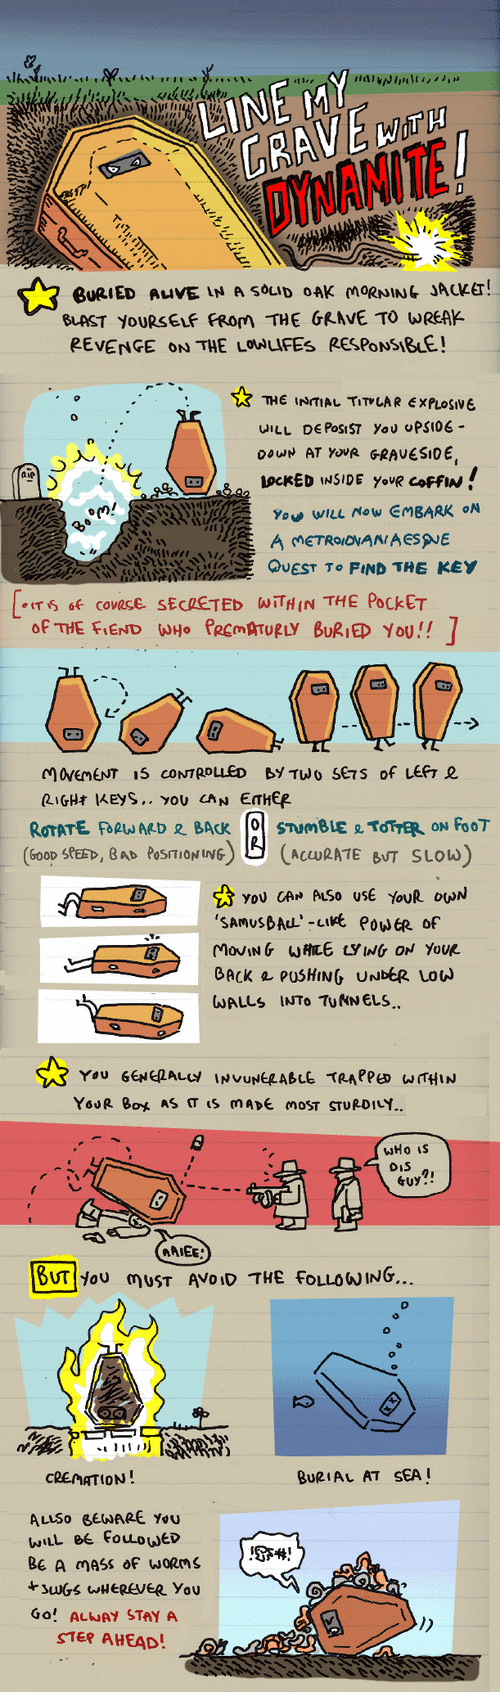 LINE MY
GRAVE WITH
DYNAMITE!
BURIED ALIVE IN A SOLID OAK MORNING JACKET!
BLAST YOURSELF FROM THE GRAVE TO WREAK
REVENGE ON THE LOWLIFES RESPONSIBLE!
THE INITIAL TITULAR EXPLOSIVE
WILL DEPOSIST YOU UPSIDE-
DOWN AT YOUR GRAVESIDE,
LOCKED INSIDE YOUR COFFIN!
RIP
BOOM!
YOU WILL NOW EMBARK ON
A METROIDVANIAESQUE
QUEST TO FIND THE KEY
[•IT IS OF COURSE SECRETED WITHIN THE POCKET
OF THE FIEND WHO PREMATURLY BURIED YOU!!]
MOVEMENT IS CONTROLLED BY TWO SETS OF LEFT &
RIGHT KEYS.. YOU CAN EITHER
ROTATE FORWARD & BACK
(GOOD SPEED, BAD POSITIONING)
OR
STUMBLE & TOTTER ON FOOT
(ACCURATE BUT SLOW)
YOU CAN ALSO USE YOUR OWN
'SAMUSBALL'-LIKE POWER OF
MOVING WHILE LYING ON YOUR
BACK & PUSHING UNDER LOW
WALLS INTO TUNNELS..
YOU GENERALLY INVUNERABLE TRAPPED WITHIN
YOUR BOX AS IT IS MADE MOST STURDILY..
WHO IS
DIS
GUY?!
AAIEE!
BUT YOU MUST AVOID THE FOLLOWING...
CREMATION!
BURIAL AT SEA!
ALLSO BEWARE YOU
WILL BE FOLLOWED
BE A MASS OF WORMS
+ SLUGS WHEREVER YOU
GO! ALWAY STAY A
STEP AHEAD!